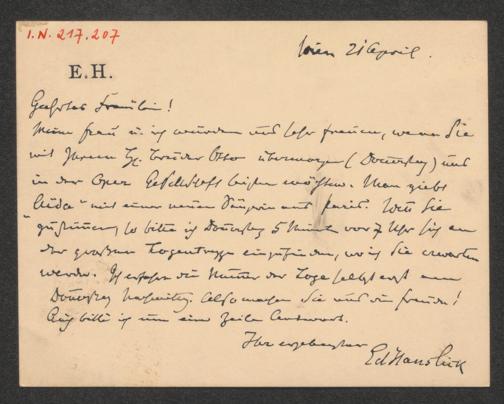 I.N. 217.207
Wien 21 April.
E.H.
Geehrtes Fräulein!
Meine Frau u. ich würden uns sehr freuen, wenn Sie
mit Ihrem H. Bruder Otto übermorgen (Donnerstag) uns
in der Oper Gesellschaft leisten möchten. Man giebt
"Aida" mit einer neuen Sängerin aus Paris. Wenn Sie
zustimmen, so bitte ich Donnerstag 5 Minuten vor 7 Uhr sich an
der großen Logentreppe einzufinden, wo ich Sie erwarten
werde. Ich erfahre die Nummer der Loge selbst erst am
Donnerstag Nachmittag. Also machen Sie uns die Freude!
Auch bitte ich um eine Zeile Antwort.
Ihr ergebenster
Ed Hanslick